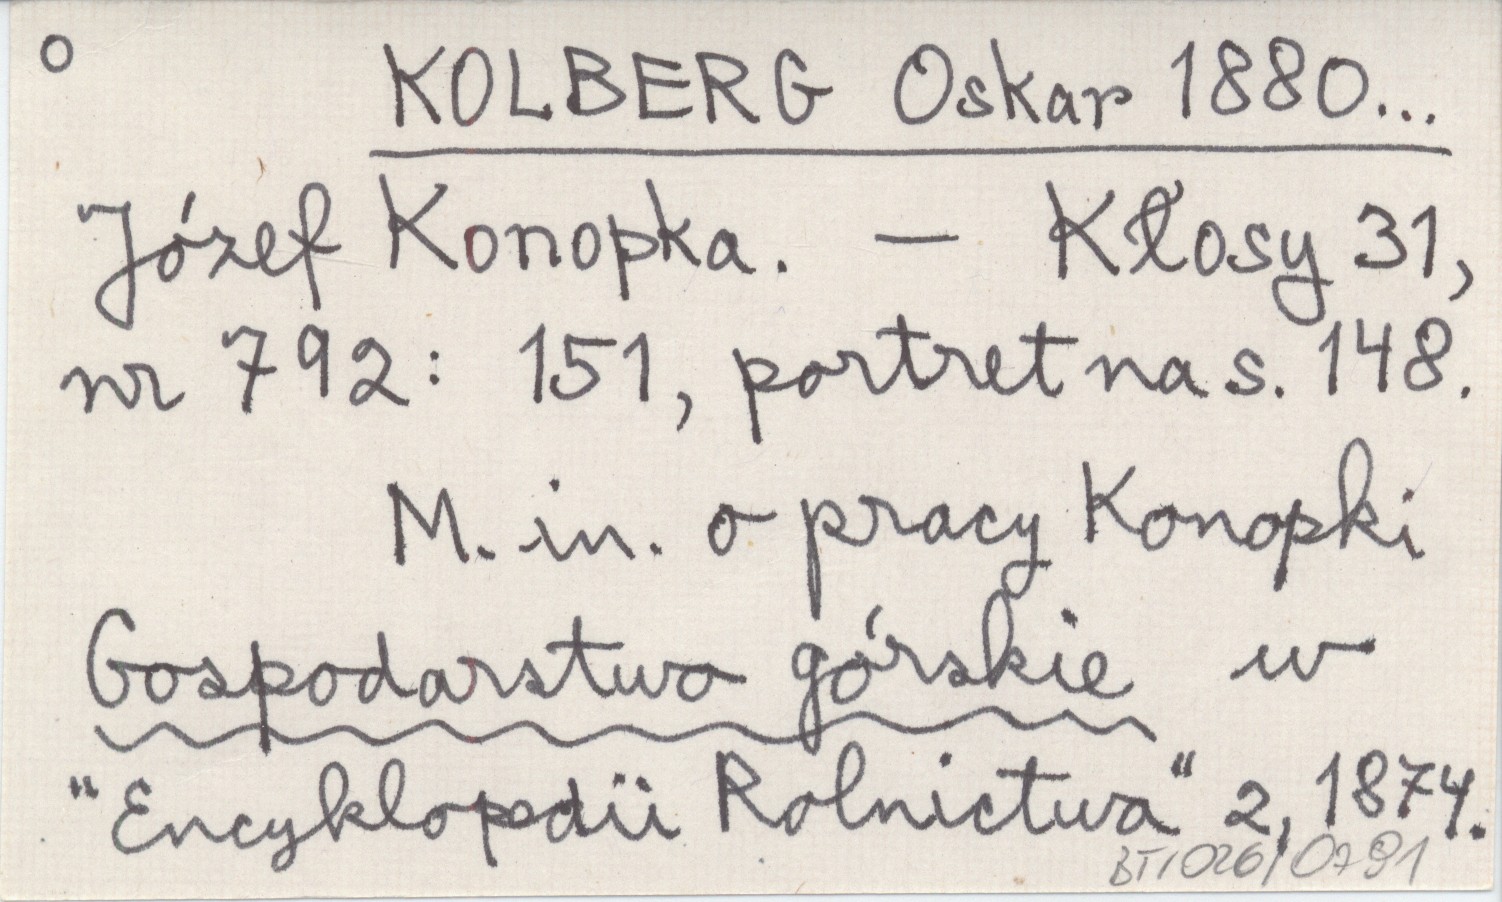 o KOLBERG Oskar 1880...
Józef Konopka. — Kłosy 31,
nr 792: 151, portret na s. 148.
M. in. o pracy Konopki
Gospodarstwo górskie w
"Encyklopedii Rolnictwa" 2, 1874.
BT/026/0791